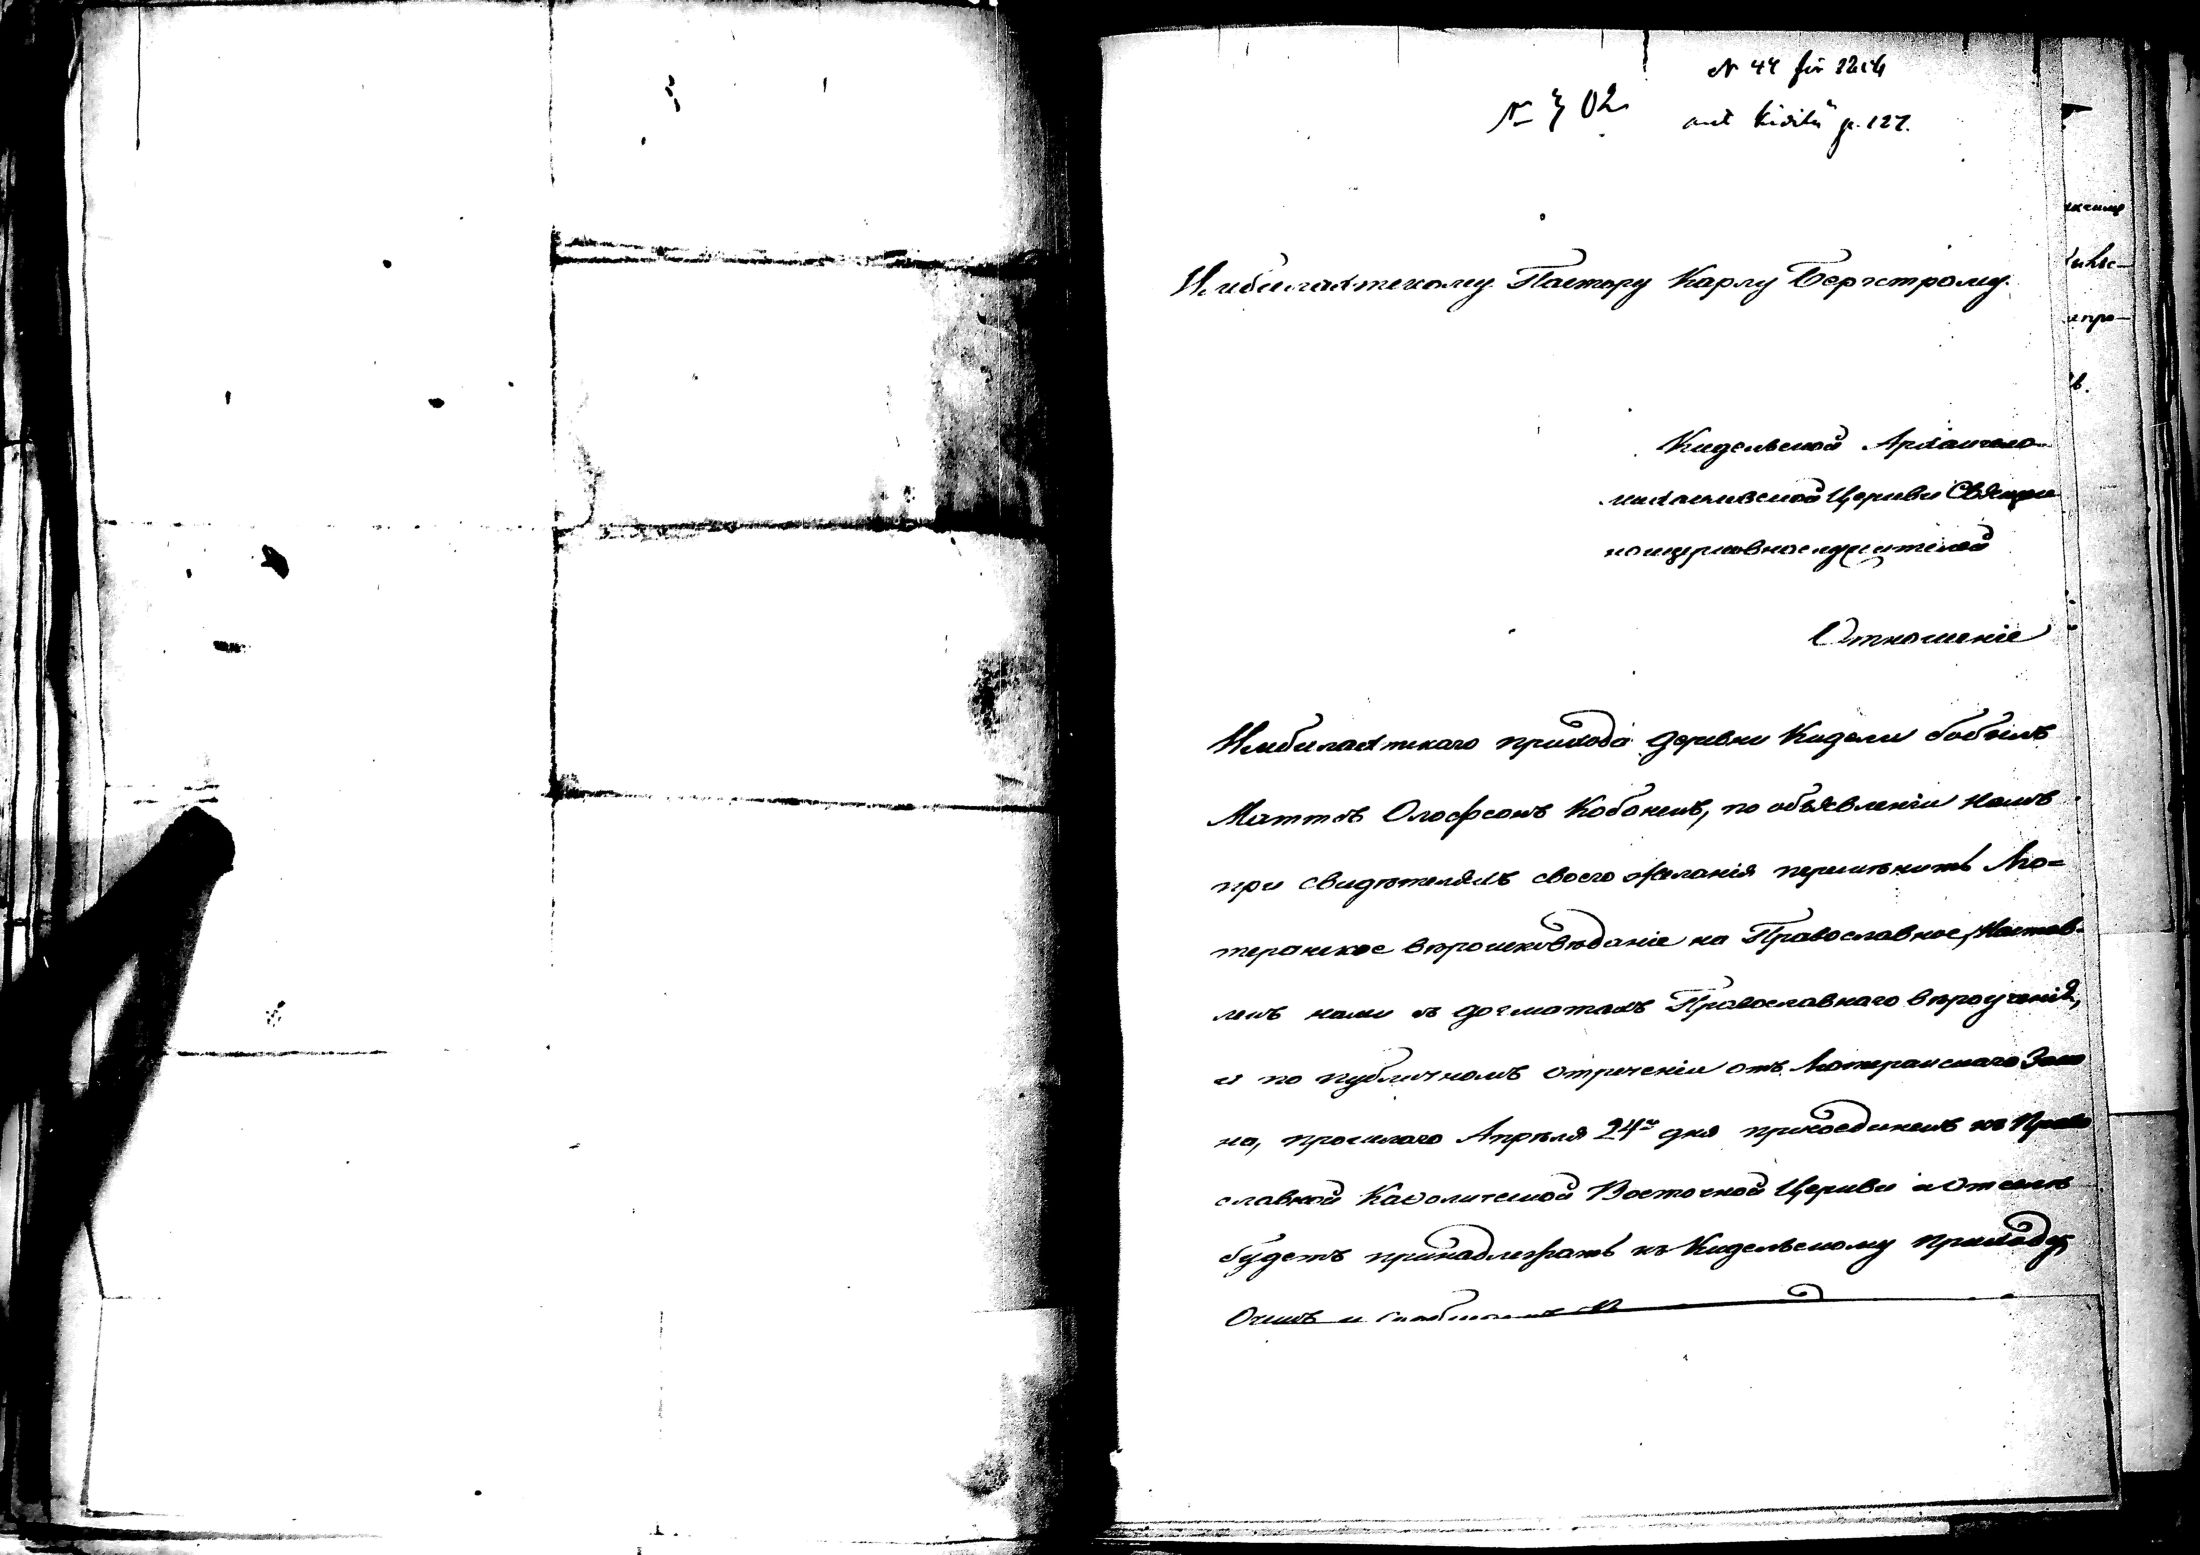 № 702
N 44 för 1864
ant Kidilä p. 127.
Имбилахтскому Пастору Карлу Бергстрому.
Кидельской Архангело-
михаиловской Церкви Священ
ноцерковнослужителей
Отношеніе
Имбилахтскаго прихода деревни Кидели бобыль
Маттъ Олофсонъ Кобоненъ, по объявленіи намъ
при свидѣтеляхъ своего желанія перемѣнить Лю=
теранское вѣроисповѣданіе на Православное, Настав-
ленъ нами въ догматахъ Православнаго вѣроученія,
и по публичномъ отреченіи отъ Лютеранскаго Зако
на, прошлаго Апрѣля 24го дня присоединенъ къ Право
славной Каѳолической Восточной Церкви и отселѣ
будетъ принадлежать къ Кидельскому приходу,
О чемъ и